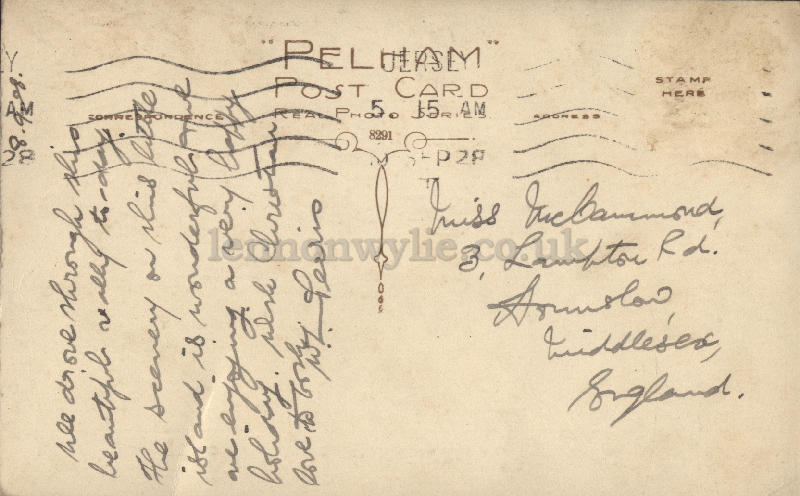 "PELHAM"
POST CARD
REAL PHOTO SERIES
CORRESPONDENCE
ADDRESS
STAMP
HERE
8291
JERSEY
5 15 AM
SEP 28
Y
AM
28
8.9.28.
We drove through this
beautiful valley to-day.
The scenery on this little
island is wonderful and
we enjoying a very happy
holiday. wish Christian
love to both
Miss McCammond,
3, Lampton Rd.
Hounslow,
Middlesex,
England.
lennonwylie.co.uk